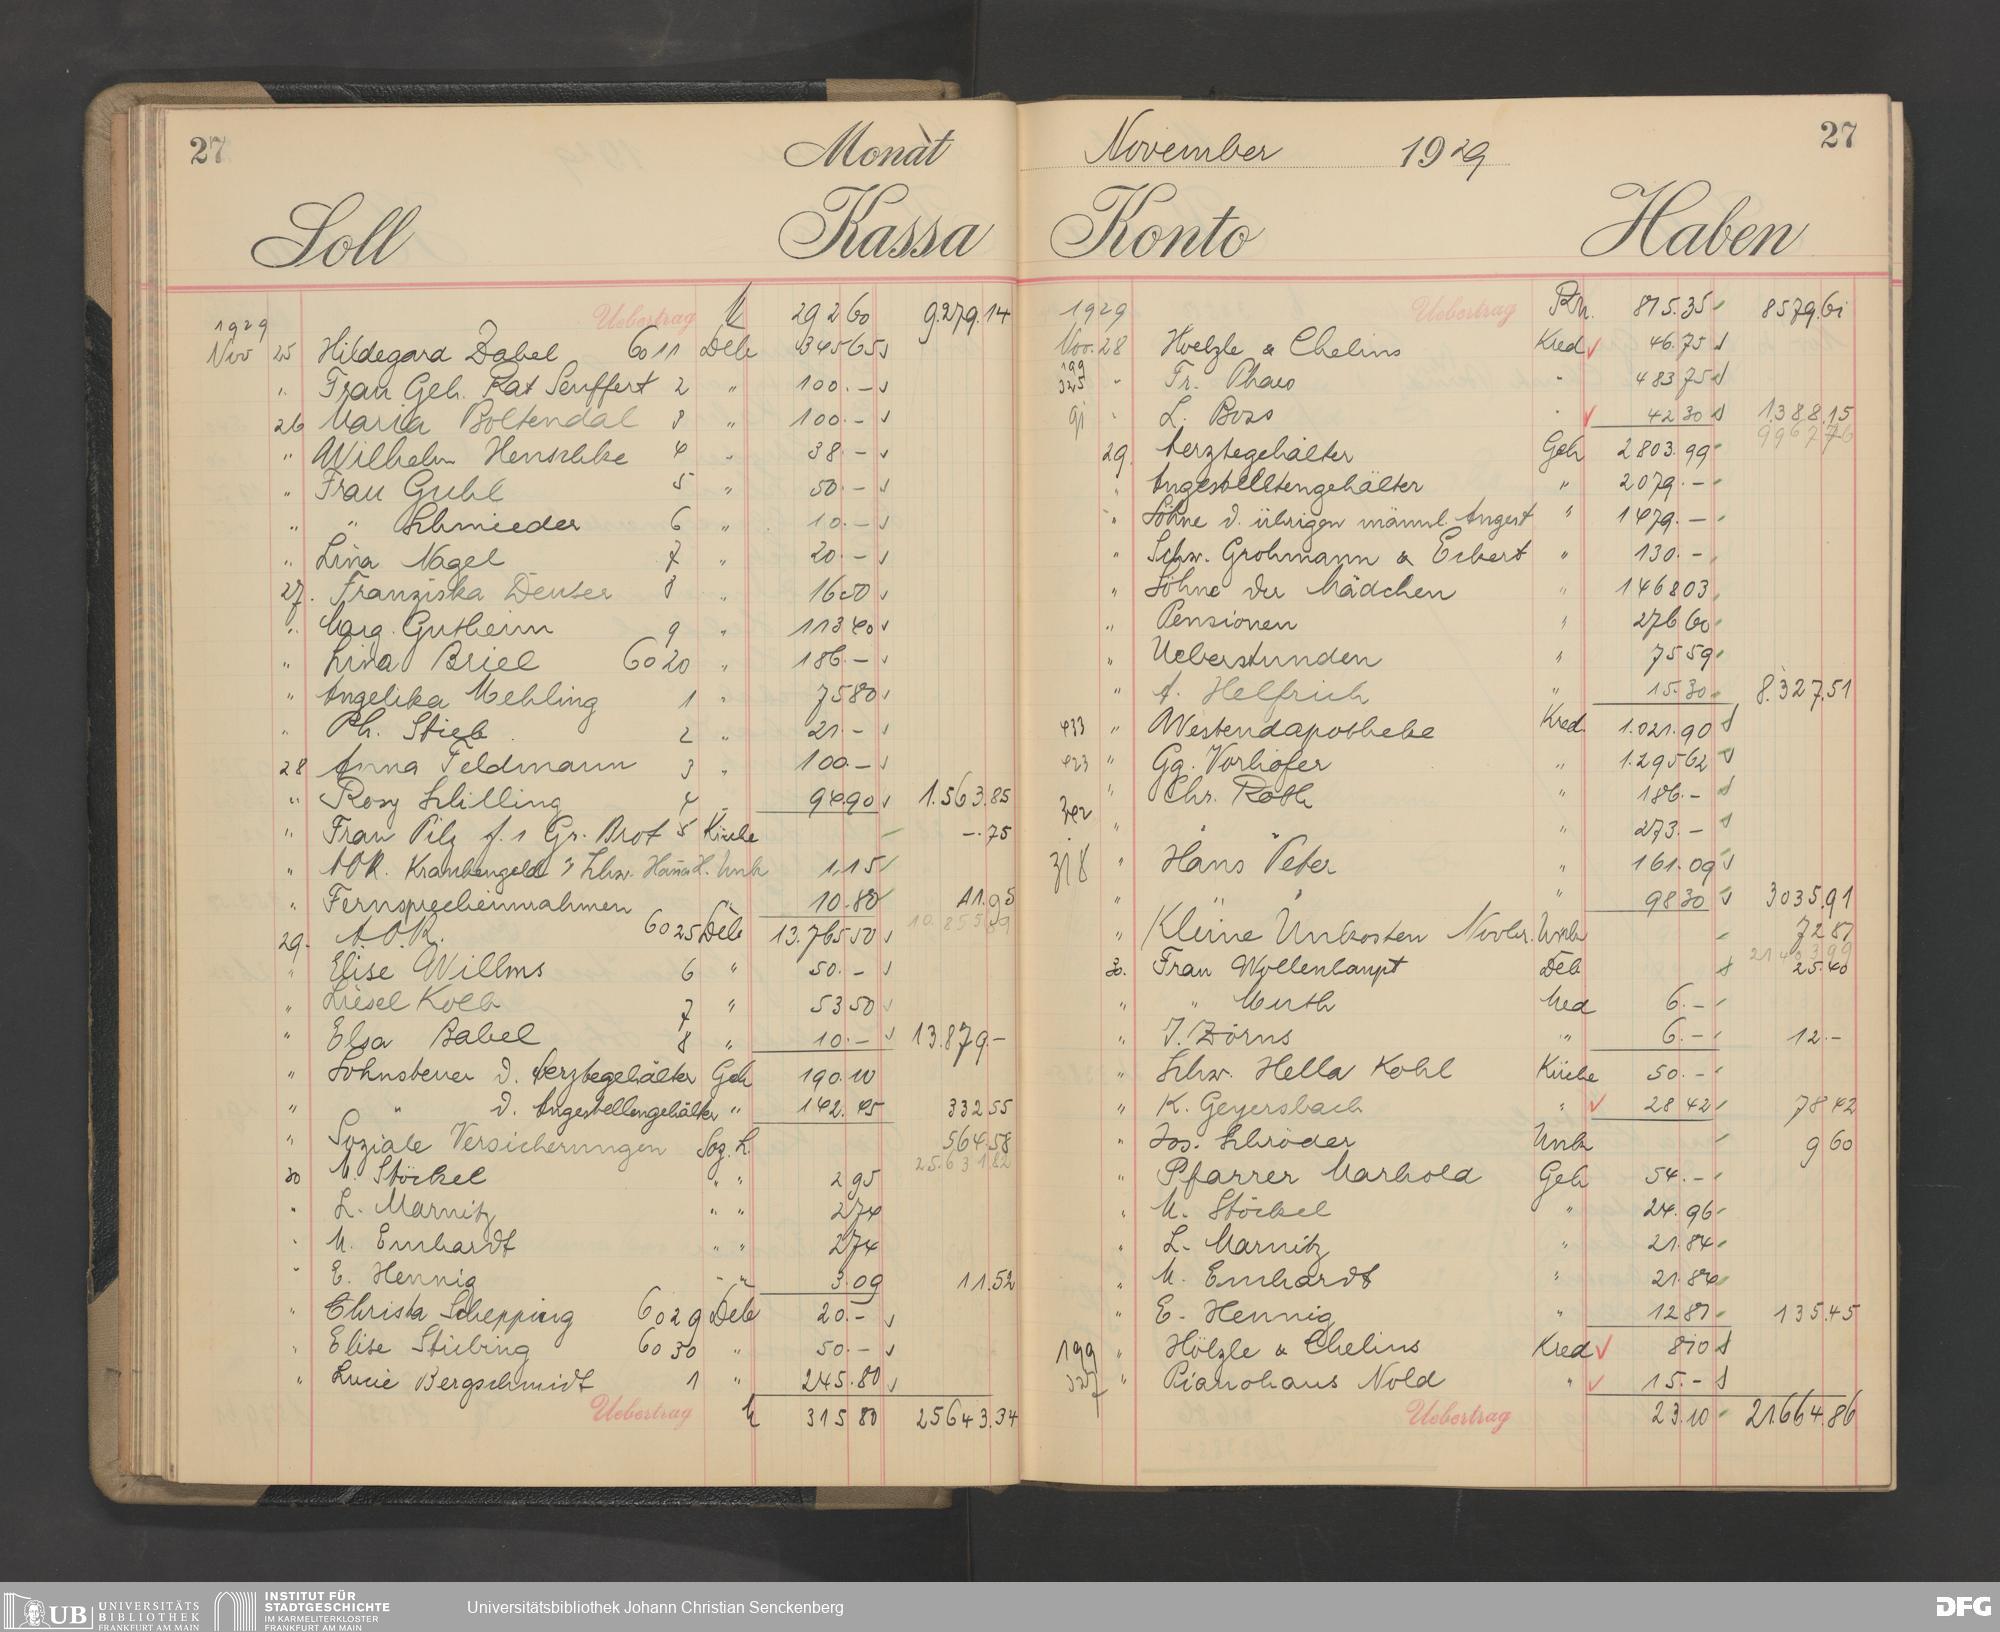 27
Monat
Soll Kassa
1929 Uebertrag 292 60 9.279.14
Nov 25 Hildegard Dabel 6011 Deb 345 65
" Frau Geh. Rat Senffert 2 " 100.–
26 Maria Boltendal 3 " 100.–
" Wilhelm Henschke 4 " 38.–
" Frau Guhl 5 " 50.–
" " Schmieder 6 " 10.–
" Lina Nagel 7 " 20.–
27. Franziska Deuser 8 " 16 50
" Marg. Gutheim 9 " 113 40
" Lina Briel 6020 " 186.–
" Angelika Mehling 1 " 75 80
" Ph. Stieb 2 " 21.–
28 Anna Feldmann 3 " 100.–
" Rosy Schilling 4 " 94 90 1.563.85
" Frau Pilz f. 1 Gr. Brot 5 Küche –.75
" AOK. Krankengeld Schw. H. Unk 1,15
" Fernsprecheinnahmen " 10.80 11.95
10.855 69
29. A.O.K. 6025 Deb 13.765 50
" Elise Willms 6 " 50.–
" Liesel Kolb 7 " 53 50
" Elsa Babel 8 " 10.– 13.879.–
" Lohnsteuer d. Aerztegehälter Geh 190.10
" " d. Angestelltengehälter " 142.45 332 55
" Soziale Versicherungen Soz. L. 564.58
25.631 82
30 M. Stöckel " " 2 95
" L. Marnitz " " 2 74
" M. Emhardt " " 2 74
" E. Hennig " " 3.09 11.52
" Christa Schepping 6029 Deb 20.–
" Elise Stübing 6030 " 50.–
" Lucie Bergschmidt 1 " 245.80
Uebertrag 315 80 25643.34
27
November 1929
Konto Haben
1929 Uebertrag 815.35 8579.61
Nov. 28 Hoelzle & Chelius Kred 46.75
199
325 " Fr. " 483 75
91 " L. " 42 30 1388.15
9967 76
29. Aerztegehälter Geh 2803.99
" Angestelltengehälter " 2079.–
" Löhne d. übrigen männl. Angest " 1479.–
" Schw. Grohmann & Eckert " 130.–
" Löhne der Mädchen " 1468 03
" Pensionen " 276 60
" Ueberstunden " 75 59
" A. Helfrich " 15.30 8.327.51
433 " Westendapotheke Kred. 1.021.90
423 " Gg. Vorhöfer " 1.295 62
" Chr. Roth " 186.–
" " " " 273.–
318 " Hans Peter " 161.09
" " " 98 30 3035.91
" Kleine Unkosten Novbr. Unk 72 87
21403 99
30. Frau Wollenhaupt Deb 25.40
" " Muth Med 6.–
" J. Zörns " 6.– 12.–
" Schw. Hella Kohl Küche 50.–
" K. Geyersbach " 28 42 78 42
" Jos. Schröder Unk 9 60
" Pfarrer Marhold Geh 54.–
" M. Stöckel " 24.96
" L. Marnitz " 21.84
" M. Emhardt " 21.84
" E. Hennig " 12 81 135.45
199 " Hölzle & Chelius Kred 8 10
327 " Pianohaus Nold " 15.–
Uebertrag 23.10 21.664.86
UB UNIVERSITÄTS BIBLIOTHEK FRANKFURT AM MAIN
INSTITUT FÜR STADTGESCHICHTE IM KARMELITERKLOSTER FRANKFURT AM MAIN
Universitätsbibliothek Johann Christian Senckenberg
DFG